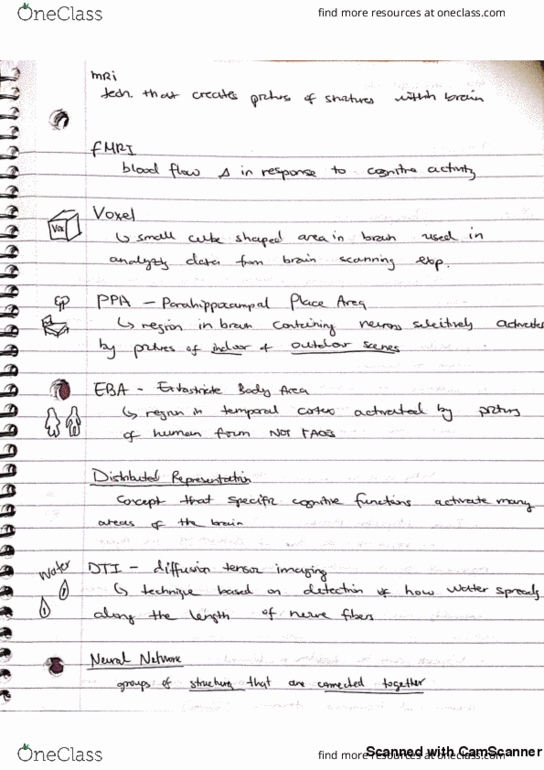 OneClass
find more resources at oneclass.com
MRI
tech. that creates pictures of structures within brain
fMRI
blood flow Δ in response to cognitive activity
Voxel
Vox
↳ small cube shaped area in brain used in
analyzing data from brain scanning exp.
PPA - Parahippocampal Place Area
↳ region in brain containing neurons selectively activated
by pictures of indoor + outdoor scenes
EBA - Extrastriate Body Area
↳ region in temporal cortex activated by pictures
of human form NOT FACES
Distributed Representation
Concept that specific cognitive functions activate many
areas of the brain
Water
DTI - diffusion tensor imaging
↳ technique based on detection of how water spreads
along the length of nerve fibers
Neural Network
groups of structure that are connected together
OneClass
find more resources at oneclass.com
Scanned with CamScanner